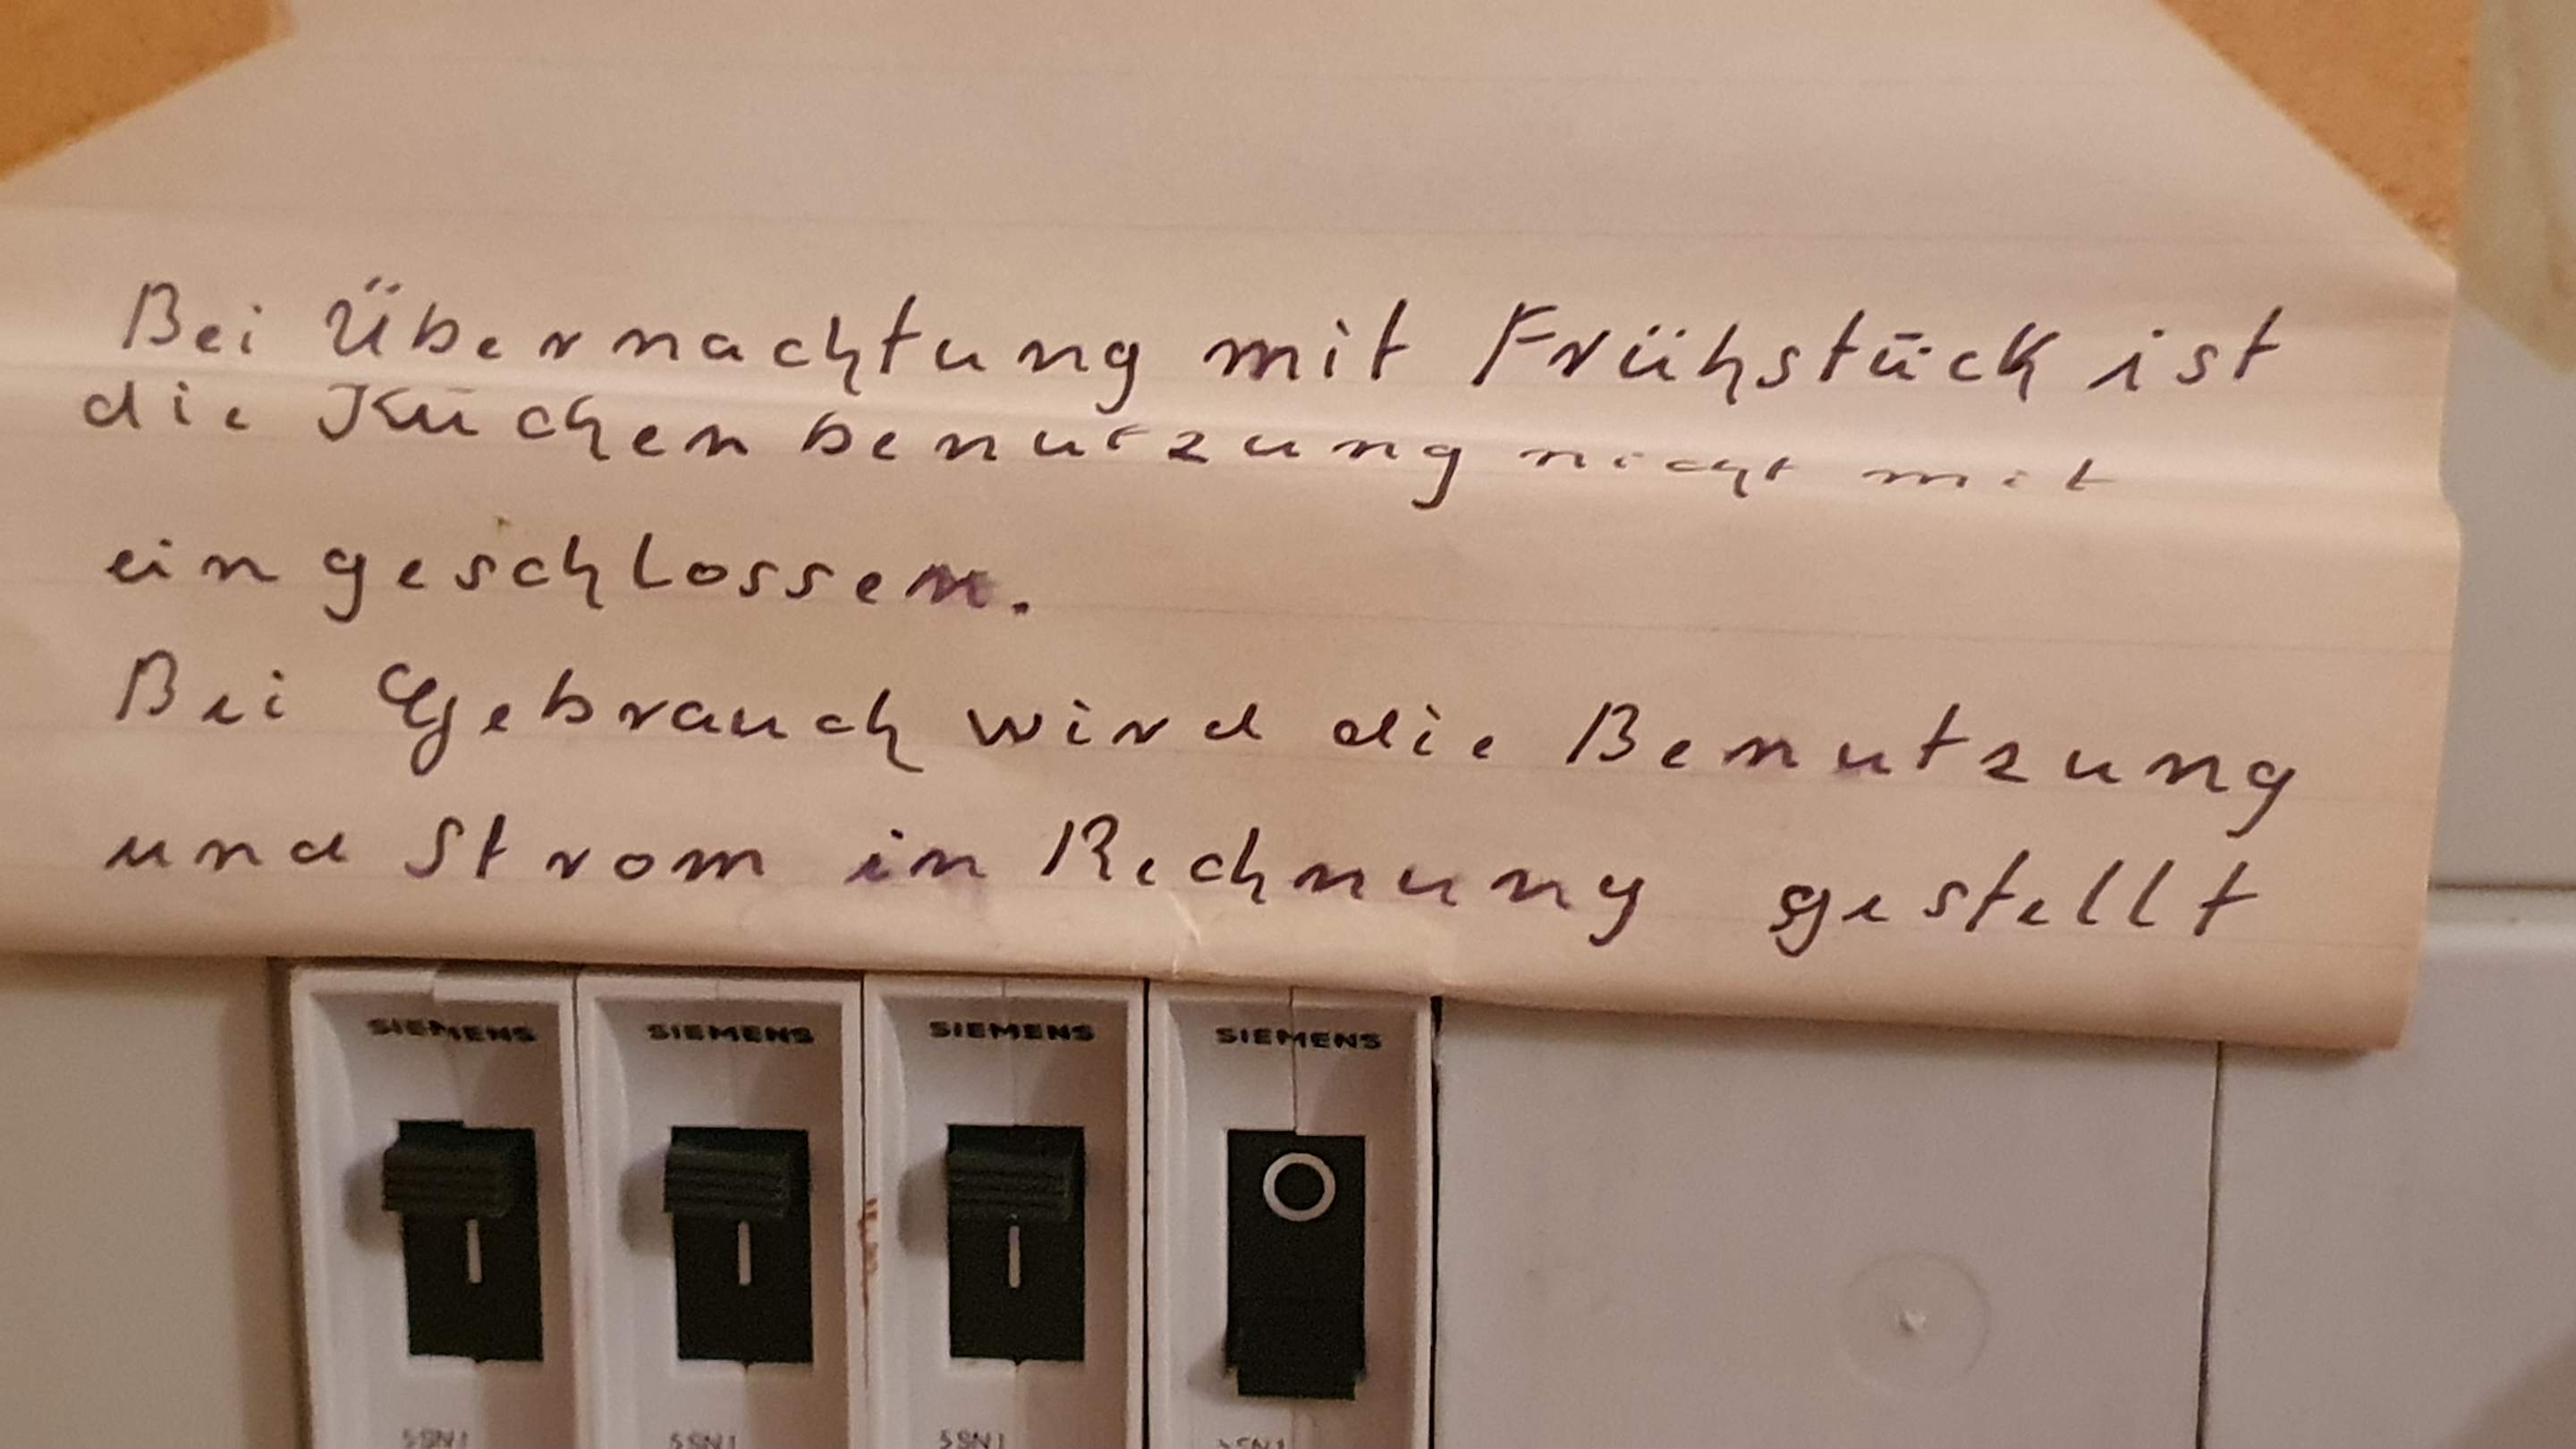 Bei Übernachtung mit Frühstück ist
die Küchenbenutzung nicht mit
eingeschlossen.
Bei Gebrauch wird die Benutzung
und Strom in Rechnung gestellt
SIEMENS SIEMENS SIEMENS SIEMENS
5SN1 5SN1 5SN1